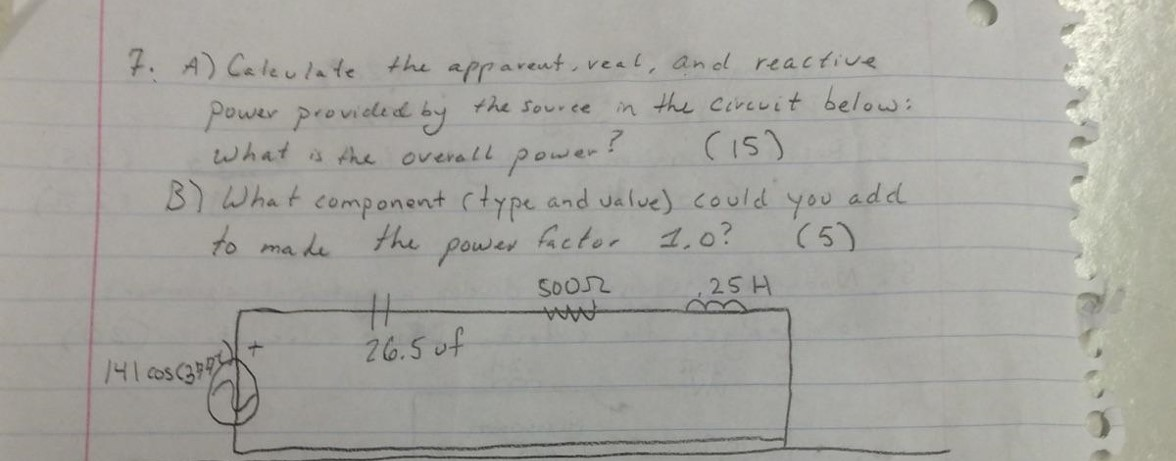 7. A) Calculate the apparent, real, and reactive
power provided by the source in the circuit below:
What is the overall power? (15)
B) What component (type and value) could you add
to made the power factor 1.0? (5)
500Ω .25 H
+ 26.5 uf
141 cos(377t)